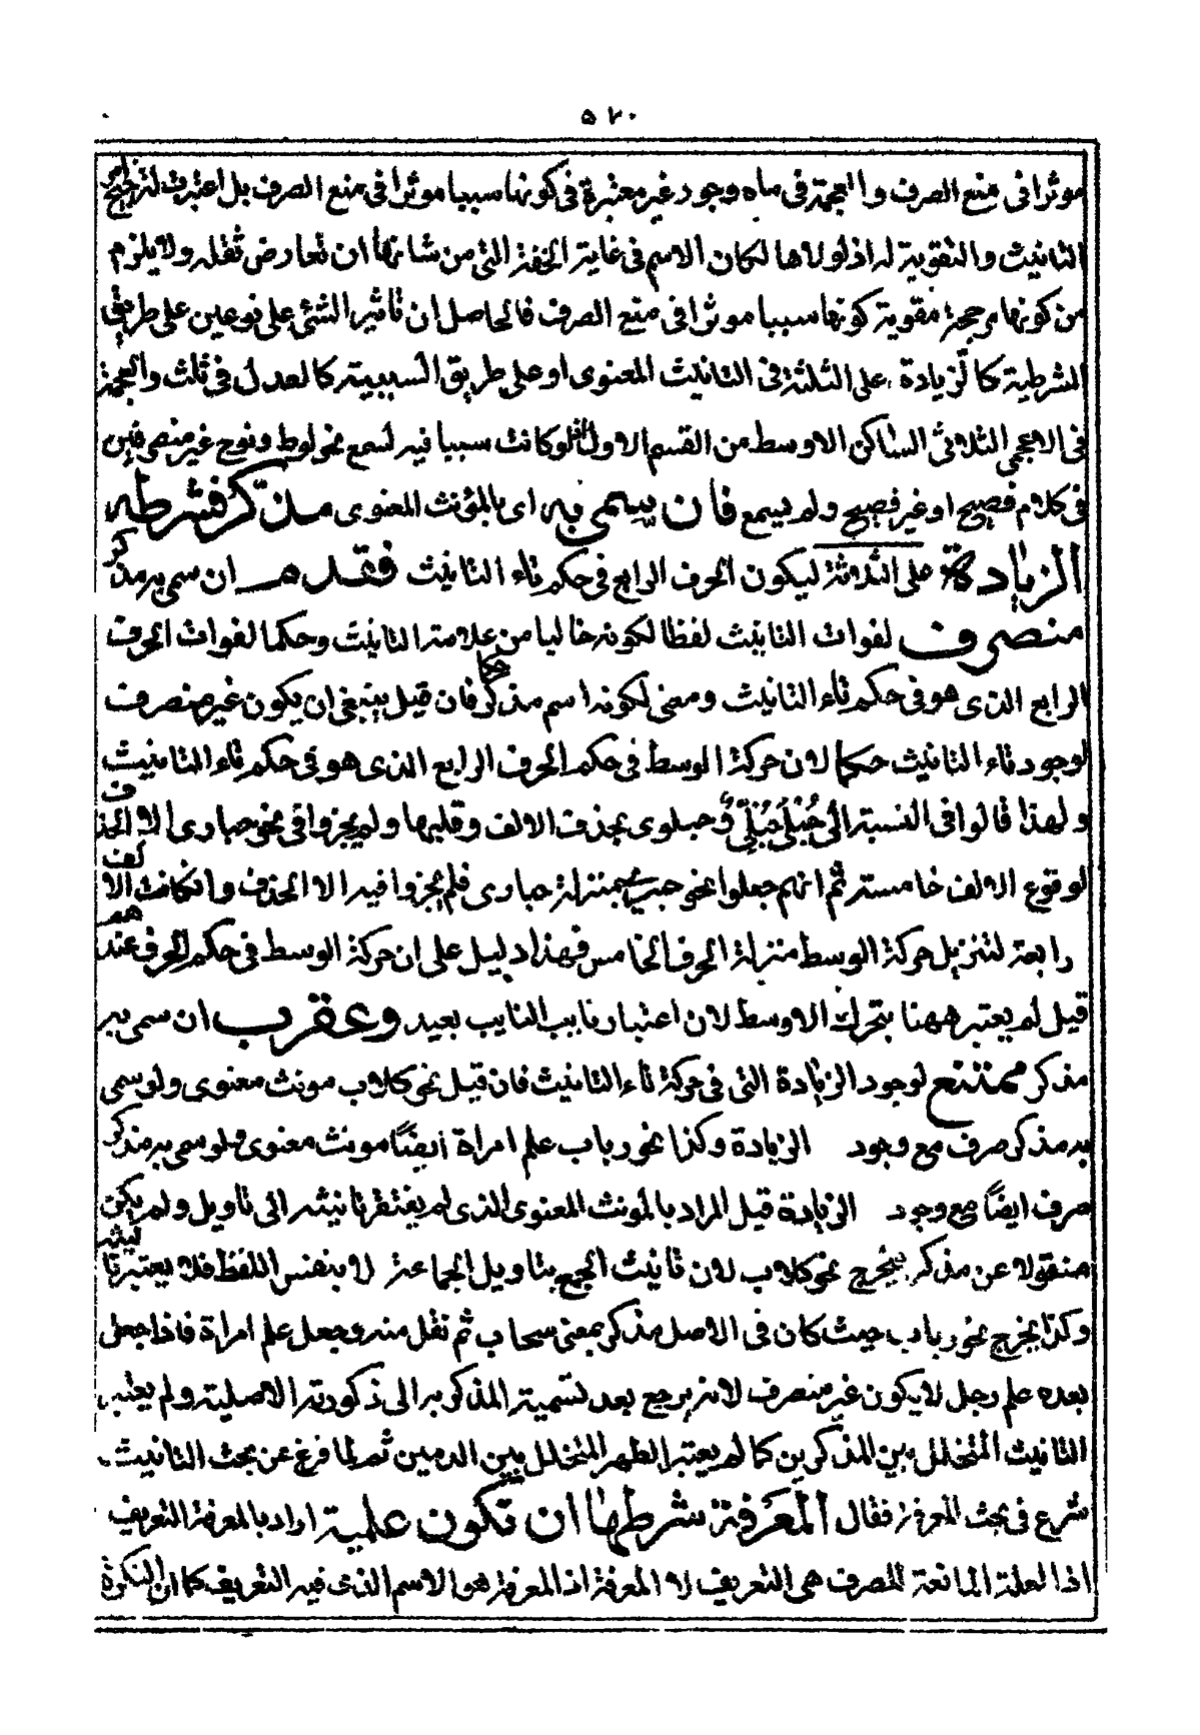 ۵۲۰
موثرا فى منع الصرف والعجمة فى ماه وجود غير معتبرة فى كونها سببا موثرا فى منع الصرف بل اعتبرت لترجيح امر
التانيث والتقوية له اذ لولاها لكان الاسم فى غاية الخفة التى من شانها ان تعارض ثقله ولا يلزم
من كونها مرجحة مقوية كونها سببا موثرا فى منع الصرف فالحاصل ان تاثير الشئ على نوعين على طريق
الشرطية كالزيادة على الثلثة فى التانيث المعنوى او على طريق السببية كالعدل فى ثلث والعجمة
فى الاعجمى الثلاثى الساكن الاوسط من القسم الاول اذ لو كانت سببا فيه لسمع نحو لوط ونوح غير منصرفين
فى كلام فصيح او غير فصيح ولم يسمع فان يسمى به اى بالمؤنث المعنوى مذكر فشرطه
الزيادة على الثلاثة ليكون الحرف الرابع فى حكم تاء التانيث فقدم ان سمى به مذكر
منصرف لفوات التانيث لفظا لكونه خاليا من علامة التانيث وحكما لفوات الحرف
الرابع الذى هو فى حكم تاء التانيث ومعنى لكونه اسم مذكر حكما فان قيل ينبغى ان يكون غير منصرف
لوجود تاء التانيث حكما لان حركة الوسط فى حكم الحرف الرابع الذى هو فى حكم تاء التانيث
ولهذا قالوا فى النسبة الى حُبْلَى حُبْلِىٌّ وحبلوى بحذف الالف وقلبها ولم يجزوا فى نحو حبارى الا الحذف
لوقوع الالف خامسة ثم انهم جعلوا نحو بمنزلة حبارى فلم يجزوا فيه الا الحذف وان كانت الالف
رابعة لتنزيل حركة الوسط منزلة الحرف الخامس فهذا دليل على ان حركة الوسط فى حكم الحرف عندهم
قيل لم يعتبر ههنا بتحرك الاوسط لان اعتبار نايب النايب بعيد وعقرب ان سمى به
مذكر ممتنع لوجود الزيادة التى فى حركة تاء التانيث فان قيل نحو كلاب مونث معنوى ولو سمى
به مذكر صرف مع وجود الزيادة وكذا نحو رباب علم امراة ايضًا مونث معنوى فلو سمى به مذكر
صرف ايضًا مع وجود الزيادة قيل المراد بالمونث المعنوى الذى لم يفتقر تانيثه الى تاويل ولم يكن
منقولا عن مذكر فيخرج نحو كلاب لان تانيث الجمع بتاويل الجماعة لا بنفس اللفظ فلا يعتبر تانيثه
وكذا يخرج نحو رباب حيث كان فى الاصل مذكر بمعنى سحاب ثم نقل منه وجعل علم امراة فاذا جعل
بعده علم رجل لا يكون غير منصرف لانه يرجع بعد تسمية المذكر به الى ذكورته الاصلية ولم يعتبر
التانيث المتخلل بين المذكرين كما لم يعتبر الطهر المتخلل بين الدمين ثم لما فرغ عن بحث التانيث
شرع فى بحث المعرفة فقال المعرفة شرطها ان تكون علمية اراد بالمعرفة التعريف
اذ العلة المانعة للصرف هى التعريف لا المعرفة اذ المعرفة هو الاسم الذى فيه التعريف كما ان النكرة